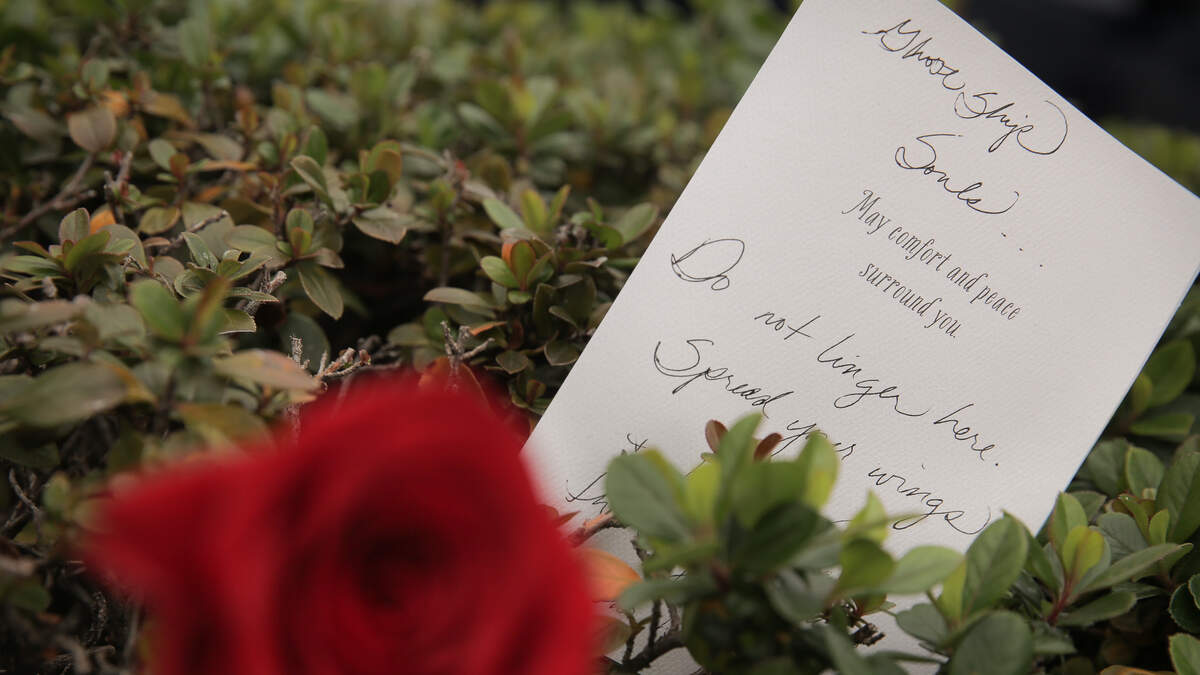 Ghost Ship
Souls...
May comfort and peace
surround you.
Do not linger here.
Spread your wings